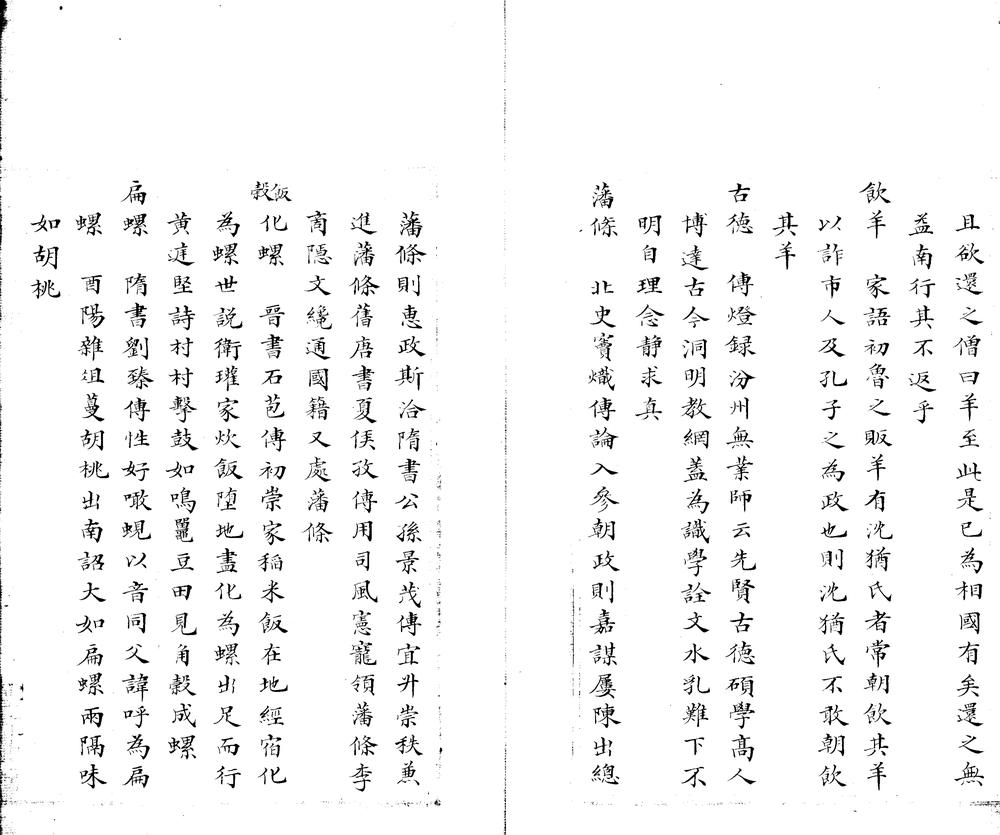 且欲還之僧曰羊至此是已為相國有矣還之無
益南行其不返乎
飲羊　家語初魯之販羊有沈猶氏者常朝飲其羊
以詐市人及孔子之為政也則沈猶氏不敢朝飲
其羊
古德　傳燈録汾州無業師云先賢古德碩學高人
博達古今洞明教網蓋為識學詮文水乳難下不
明自理念静求真
藩條　北史竇熾傳論入參朝政則嘉謀屢陳出總
藩條則惠政斯洽隋書公孫景茂傳宜升崇秩兼
進藩條舊唐書夏侯孜傳用司風憲寵領藩條李
商隱文纔通國籍又處藩條
飯穀化螺　晉書石苞傳初崇家稻米飯在地經宿化
為螺世説衛瓘家炊飯墮地盡化為螺出足而行
黄庭堅詩村村擊鼓如鳴鼉豆田見角穀成螺
扁螺　隋書劉臻傳性好噉蜆以音同父諱呼為扁
螺　酉陽雜俎蔓胡桃出南詔大如扁螺兩隔味
如胡桃